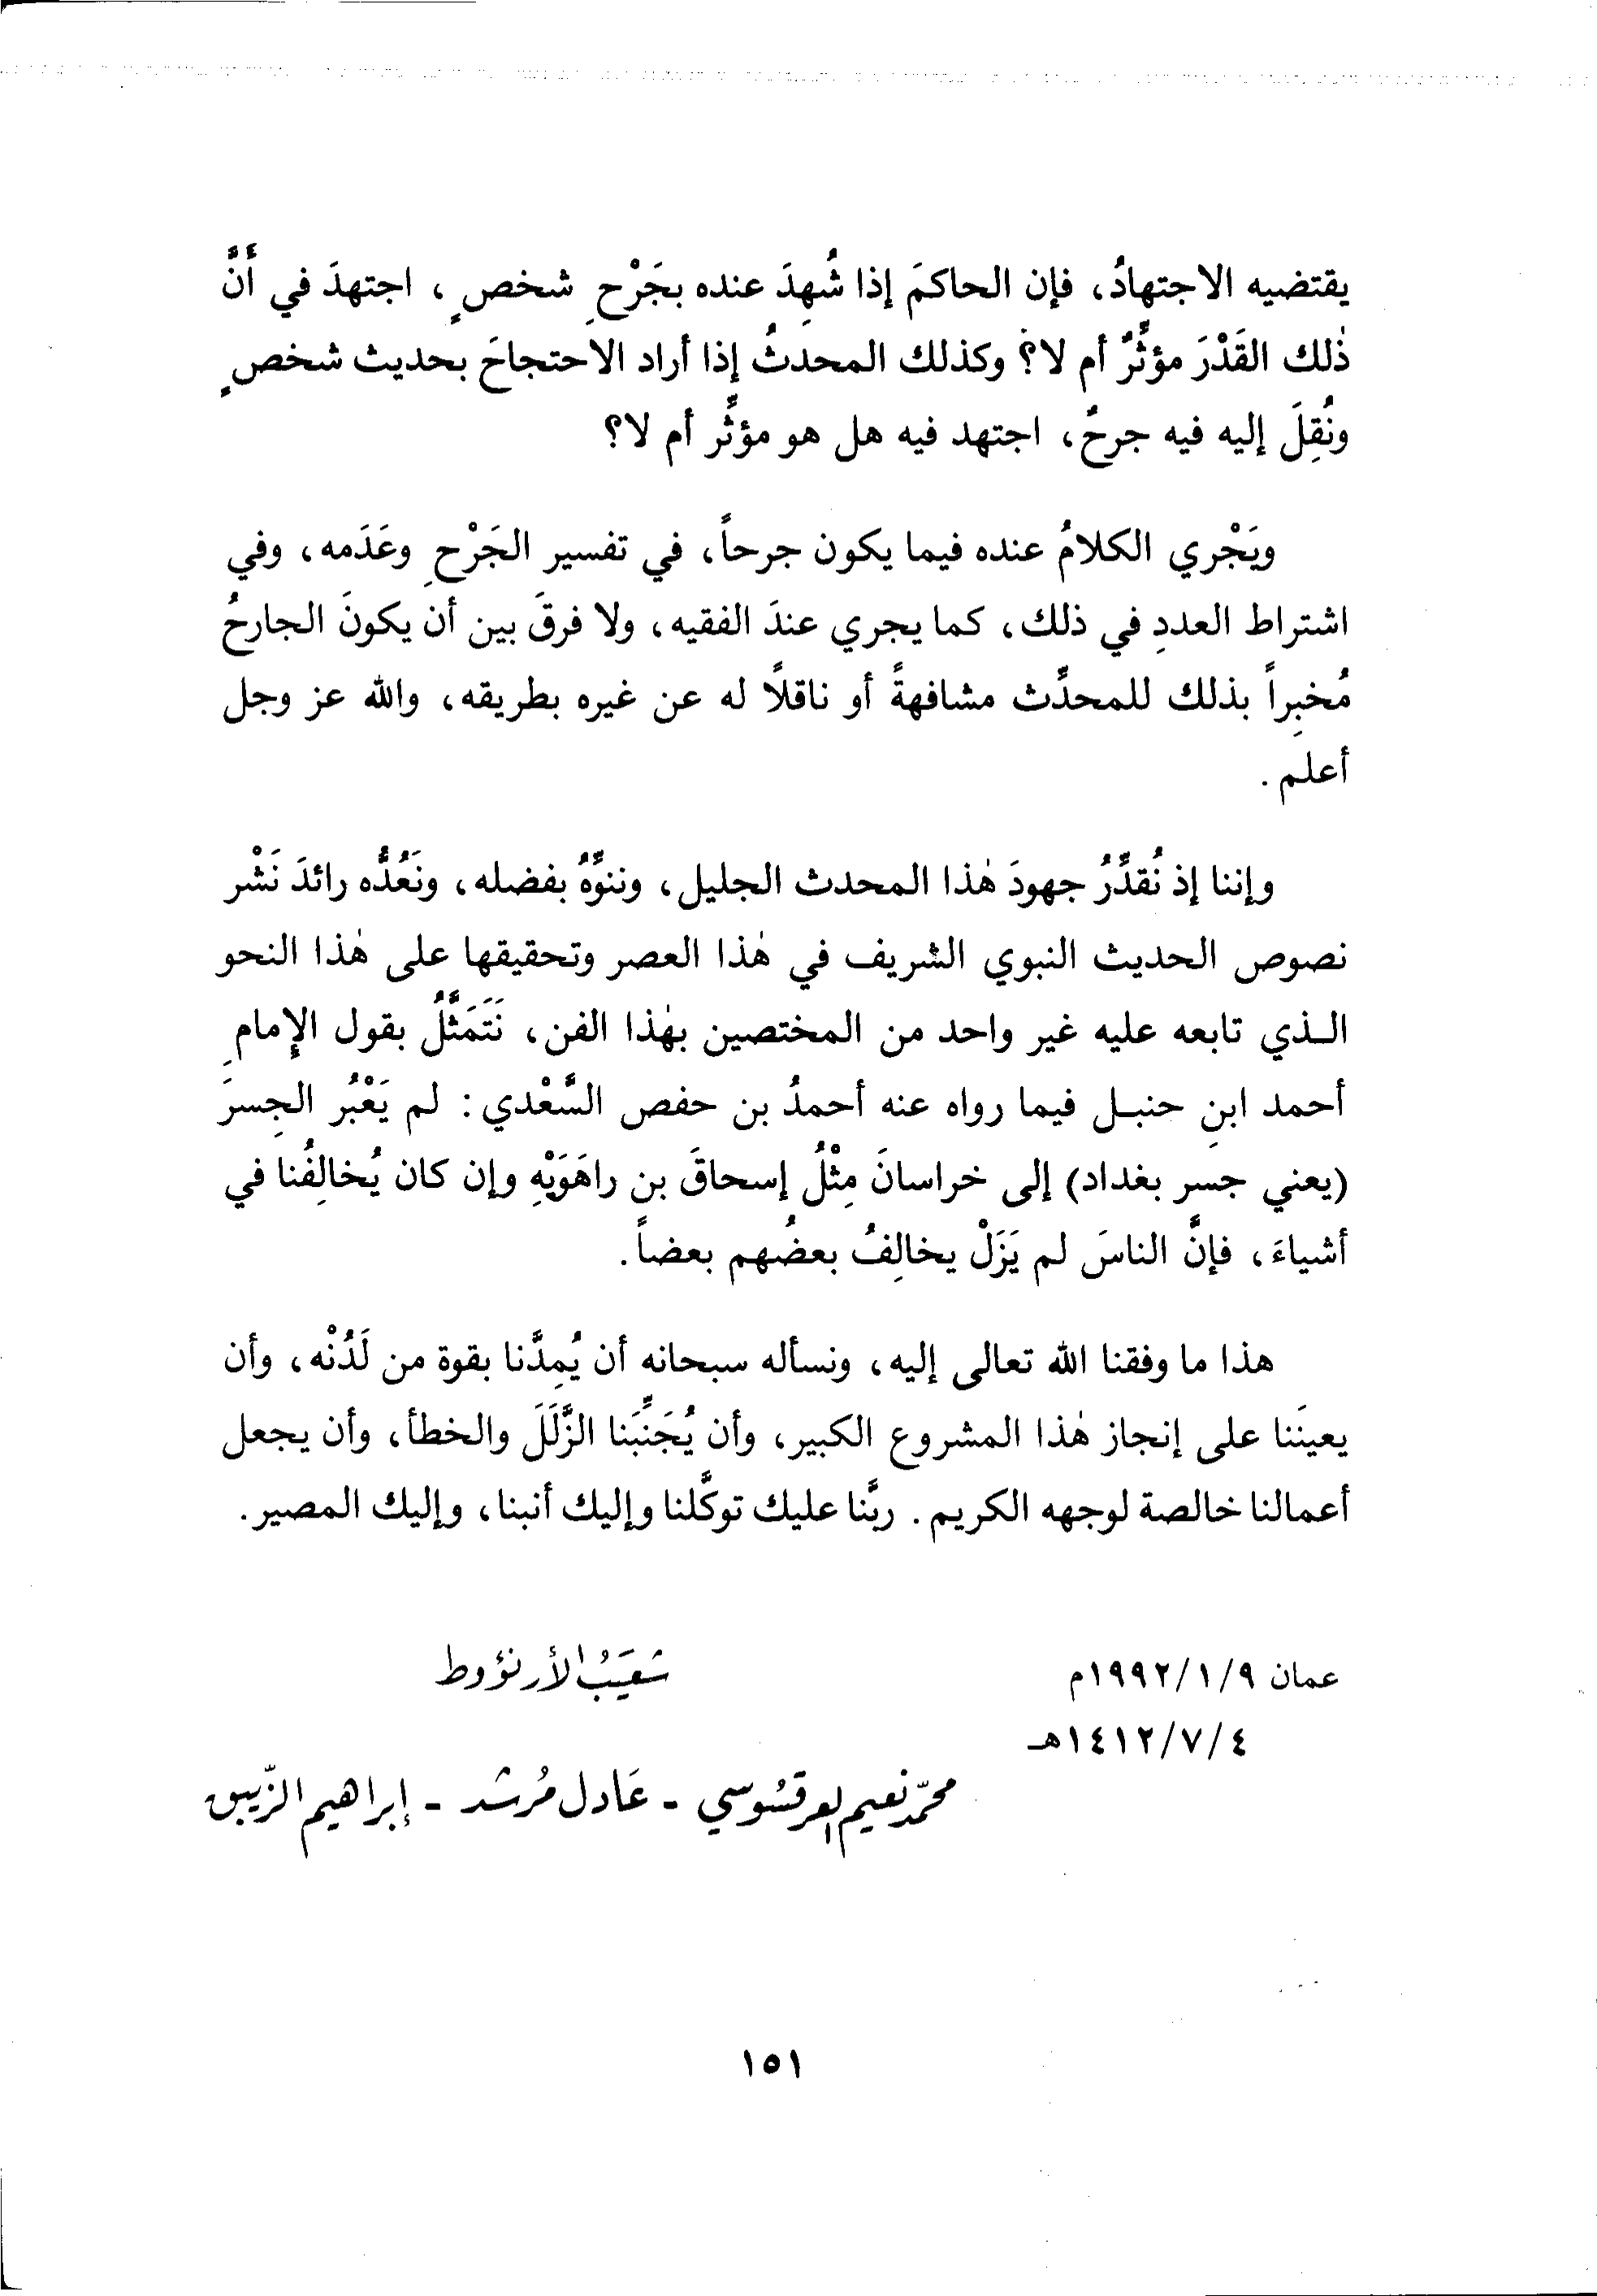 يقتضيه الاجتهادُ، فإن الحاكمَ إذا شُهِدَ عنده بجَرْحِ شخصٍ، اجتهدَ في أَنَّ
ذٰلك القَدْرَ مؤثِّرٌ أم لا؟ وكذلك المحدثُ إذا أراد الاحتجاجَ بحديث شخصٍ
ونُقِلَ إليه فيه جرحٌ، اجتهد فيه هل هو مؤثِّر أم لا؟
ويَجْري الكلامُ عنده فيما يكون جرحاً، في تفسير الجَرْحِ وعَدَمه، وفي
اشتراط العددِ في ذلك، كما يجري عندَ الفقيه، ولا فرقَ بين أن يكونَ الجارحُ
مُخبِراً بذلك للمحدِّث مشافهةً أو ناقلاً له عن غيره بطريقه، والله عز وجل
أعلم.
وإننا إذ نُقدِّرُ جهودَ هٰذا المحدث الجليل، وننوِّهُ بفضله، ونَعُدُّه رائدَ نَشْر
نصوص الحديث النبوي الشريف في هٰذا العصر وتحقيقها على هٰذا النحو
الـذي تابعه عليه غير واحد من المختصين بهٰذا الفن، نَتَمَثَّلُ بقول الإِمامِ
أحمد ابنِ حنبـل فيما رواه عنه أحمدُ بن حفص السَّعْدي: لم يَعْبُر الجِسرَ
(يعني جسر بغداد) إلى خراسانَ مِثْلُ إسحاقَ بن راهَوَيْهِ وإن كان يُخالِفُنا في
أشياءَ، فإنَّ الناسَ لم يَزَلْ يخالِفُ بعضُهم بعضاً.
هذا ما وفقنا الله تعالى إليه، ونسأله سبحانه أن يُمِدَّنا بقوة من لَدُنْه، وأن
يعينَنا على إنجاز هٰذا المشروع الكبير، وأن يُجَنِّبَنا الزَّلَلَ والخطأ، وأن يجعل
أعمالنا خالصة لوجهه الكريم. ربَّنا عليك توكَّلنا وإليك أنبنا، وإليك المصير.
عمان ١٩٩٢/١/٩م
شعَيبُ الأرنؤوط
١٤١٢/٧/٤هـ
محمّد نعيم العرقسُوسي - عَادل مُرشد - إبراهيم الزّيبق
١٥١